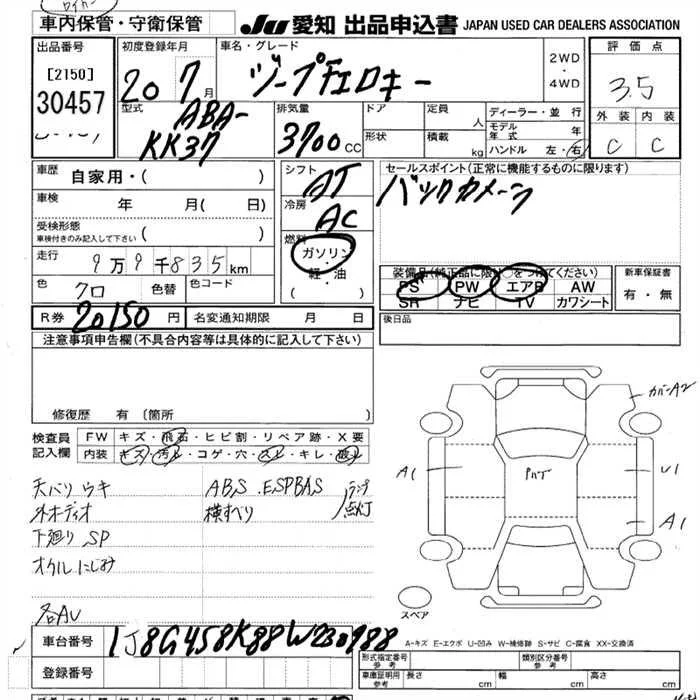 車内保管・守衛保管
JU 愛知 出品申込書 JAPAN USED CAR DEALERS ASSOCIATION
出品番号
[2150]
30457
初度登録年月
20 7月
車名・グレード
ジープチェロキー
2WD
・
4WD
評価点
3.5
外装 内装
C C
型式
ABA-
KK37
排気量
3700cc
ドア
形状
定員 人
積載 kg
ディーラー・並行
モデル年式 年
ハンドル 左・右
車歴 自家用・( )
車検 年 月( 日)
受検形態
車検付きのみ記入して下さい ( )
走行 9万9千835km
色 クロ 色替 色コード
R券 20150円 名変通知期限 月 日
シフト
AT
冷房
AC
燃料
ガソリン
・
軽・油
( )
セールスポイント(正常に機能するものに限ります)
バックカメーン
装備品(純正品に限り○をつけてください)
PS PW エアB AW
SR ナビ TV カワシート
新車保証書
有・無
後日品
注意事項申告欄(不具合内容等は具体的に記入して下さい)
修復歴 有 〔箇所 〕
検査員記入欄
FW キズ・飛石・ヒビ割・リペア跡・X要
内装 キズ・汚レ・コゲ・穴・スレ・キレ・破レ
天バリ ウキ
外オーディオ
下廻り SP
オイルにじみ
各AV
ABS .ESPBAS
横すべり
ランプ点灯
カバーA2
A1
U1
A1
スペア
A-キズ E-エクボ U-凹み W-補修跡 S-サビ C-腐食 XX-交換済
車台番号 1J8G458K88W230988
登録番号
形式指定番号 参考
類別区分番号 参考
車庫証明用 参考
長さ cm
幅 cm
高さ cm